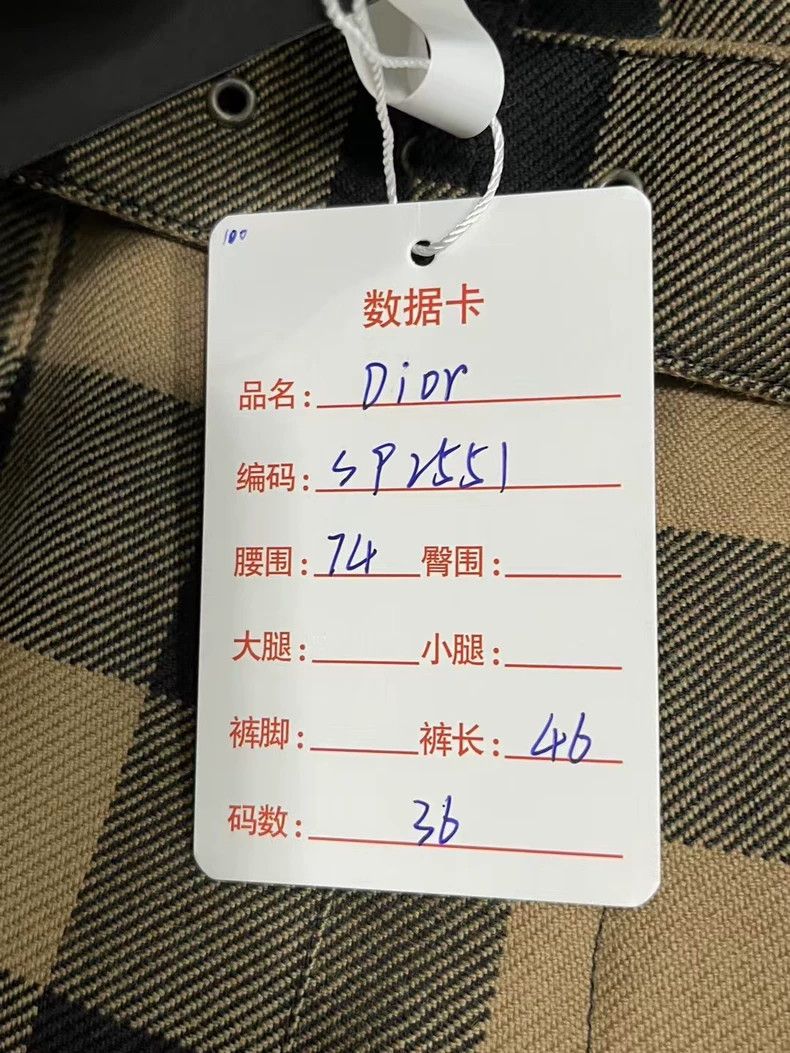 100
数据卡
品名: Dior
编码: SP2551
腰围: 74 臀围:
大腿: 小腿:
裤脚: 裤长: 46
码数: 36